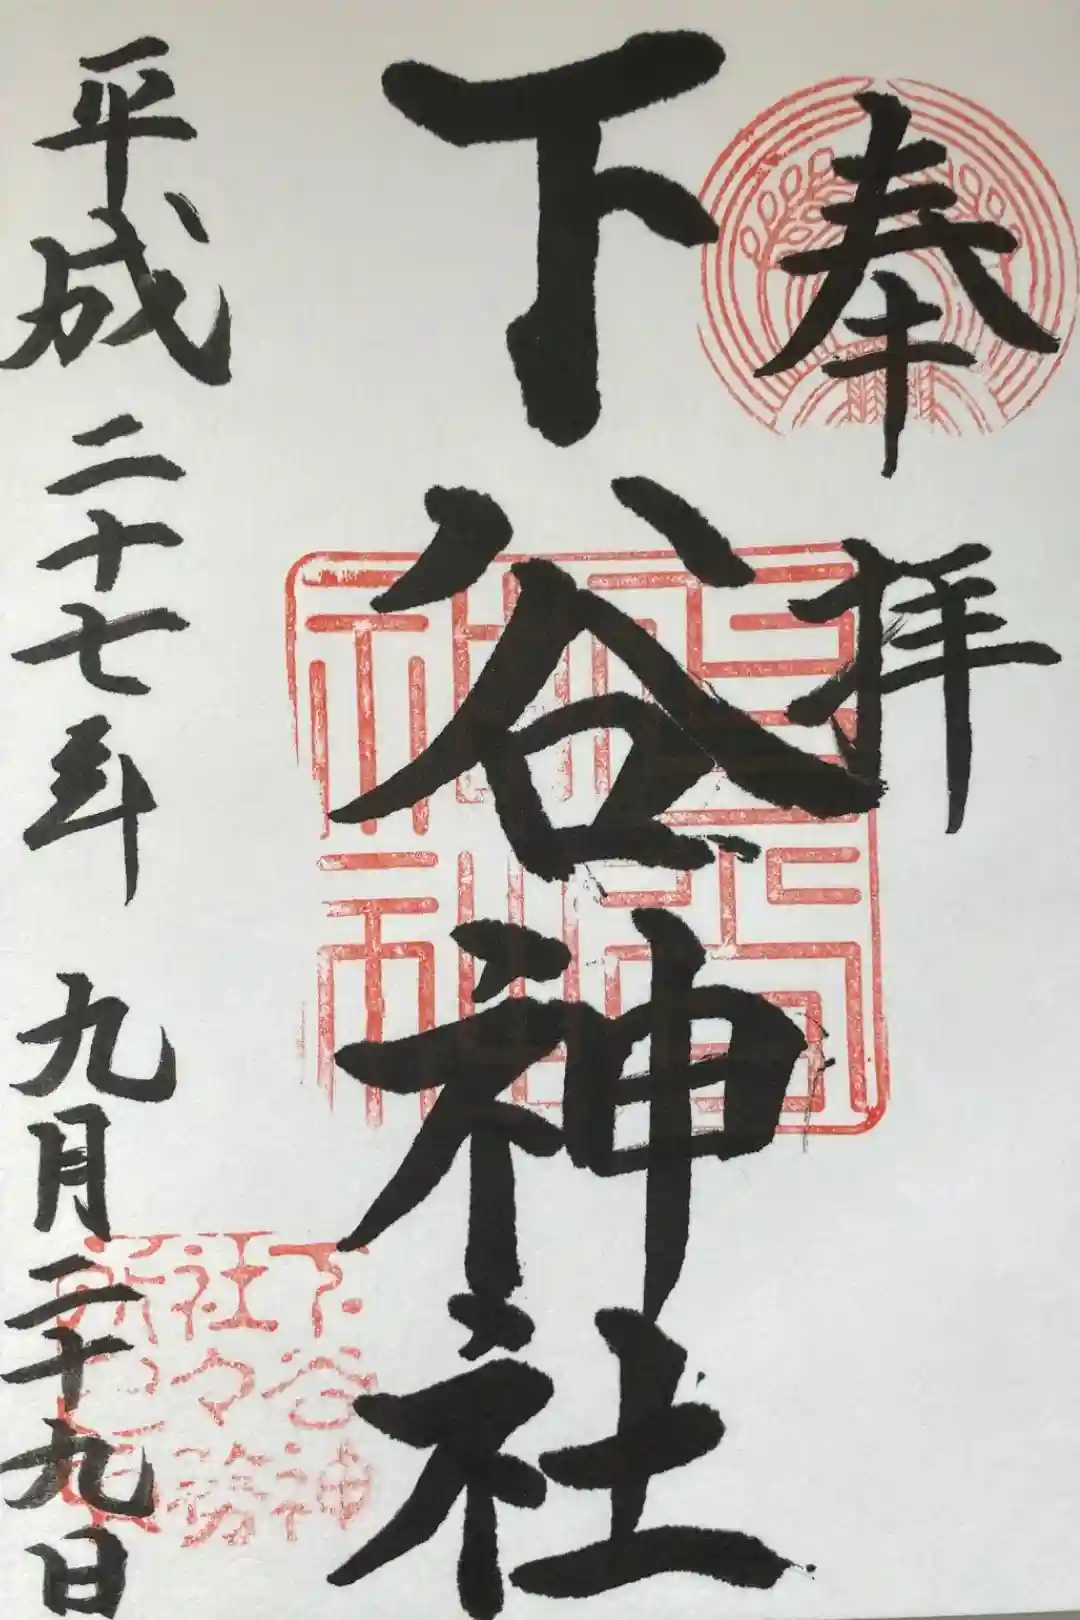 奉拝
下谷神社
平成二十七年 九月二十九日
下谷神
社々務
所之印